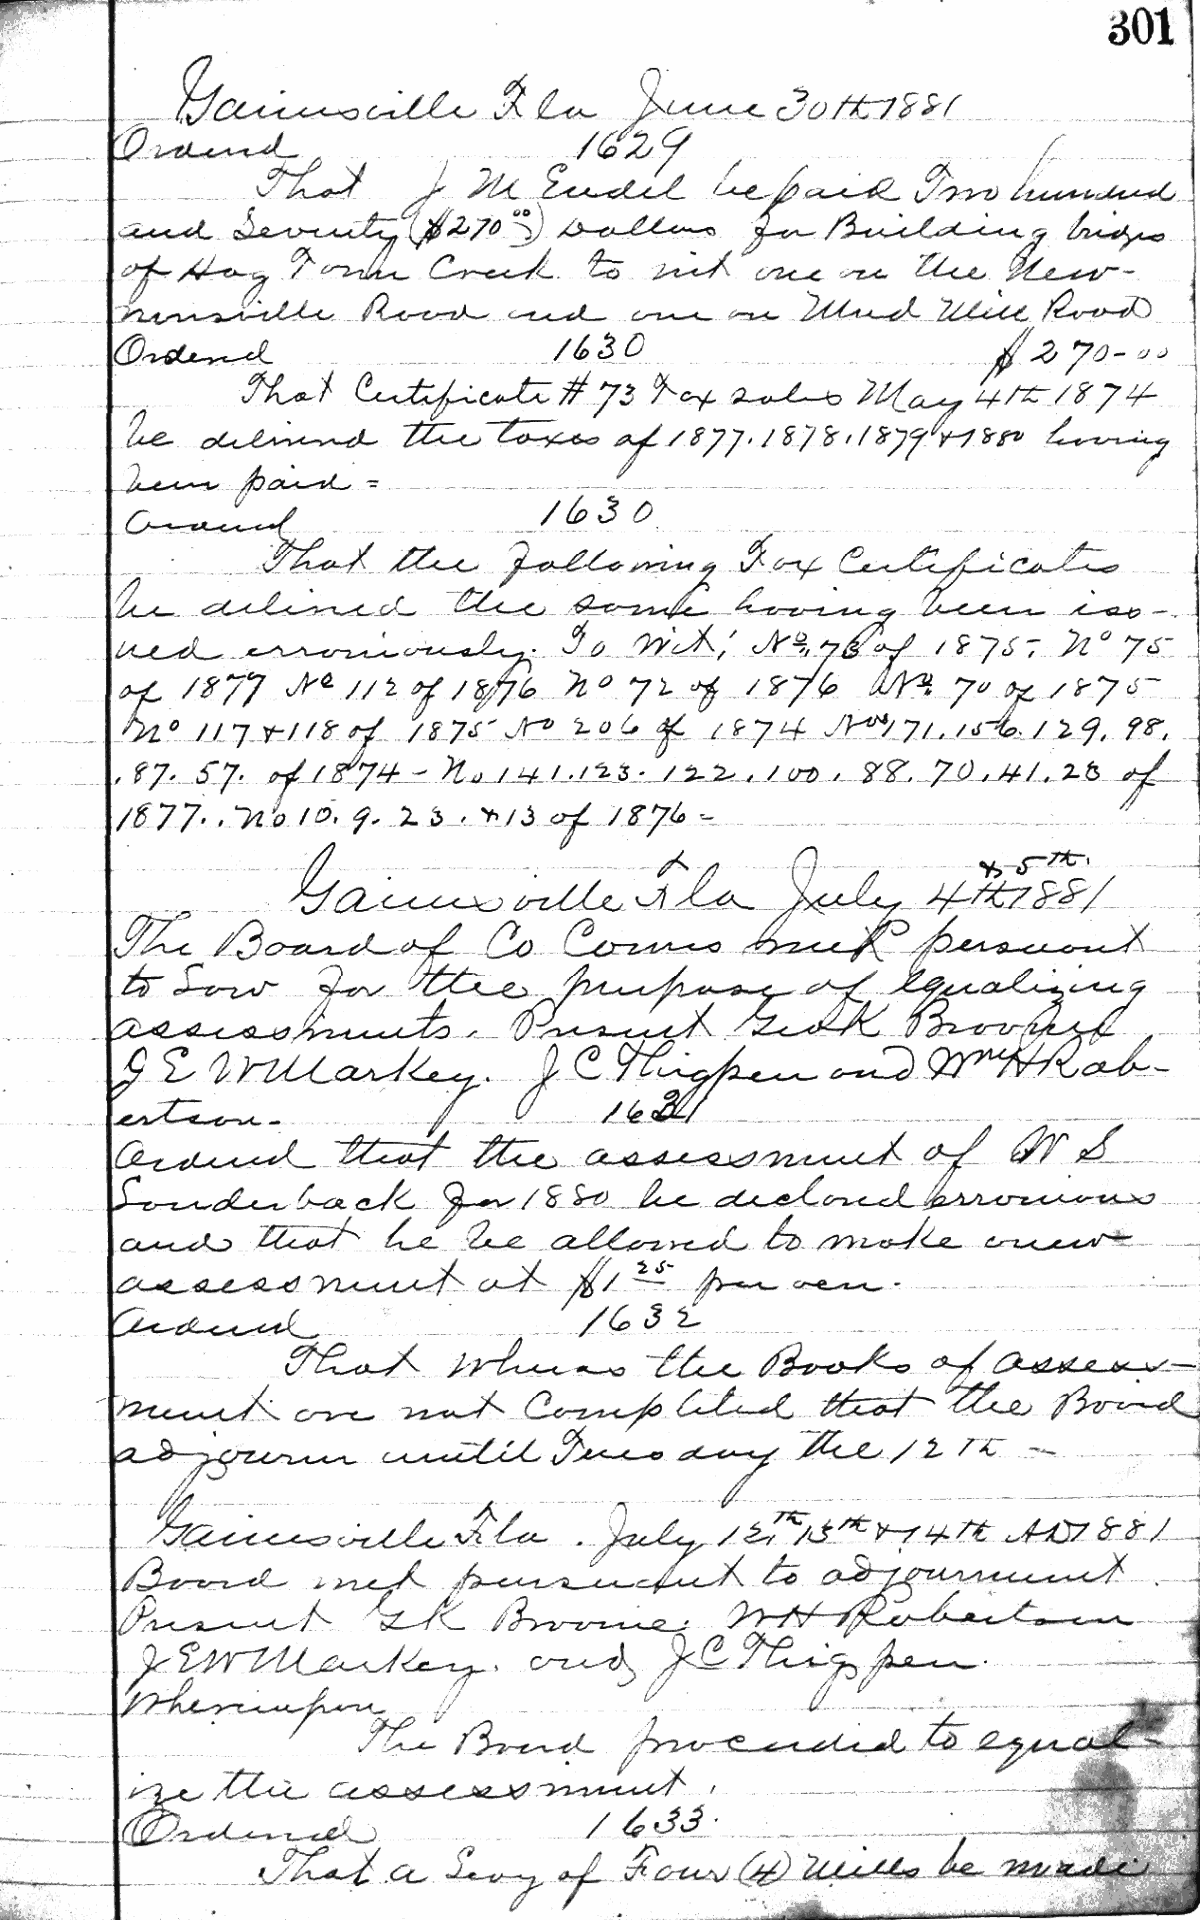 301
Gainesville Fla June 30th 1881
Ordered 1629
That J M Endel be paid Two hundred
and Seventy ($270.00) Dollars for Building bridges
of Hog Town Creek to wit one on the New-
nansville Road and one on Mud Mill Road
Ordered 1630 $270-00
That Certificate # 73 Tax sales May 4th 1874
be delivered the taxes of 1877.1878.1879 & 1880 having
been paid =
Ordered 1630
That the following Tax Certificates
be delivered the same having been iss-
ued erroniously. To Wit; No. 76 of 1875; No 75
of 1877 No 112 of 1876 No 72 of 1876 No. 70 of 1875
No 117 & 118 of 1875 No 206 of 1874 Nos 171.156.129.98.
.87.57. of 1874 - No 141.123.122.100.88.70.41.28 of
1877.. No 10.9.23.&13 of 1876 -
Gainesville Fla July 4th & 5th. 1881
The Board of Co Coms met persuant
to Law for the purpose of equalizing
assessments. Present Geo K Broome
J E W Markey. J C Thigpen and Wm H Rob-
ertson. 1631
Ordered that the assessment of W S
Louderback for 1880 be declared erronious
and that he be allowed to make a new
assessment at $1 25 per acre.
Ordered 1632
That Whereas the Books of assess-
ment are not Completed that the Board
adjourn until Tuesday the 12th -
Gainesville Fla. July 12th 13th & 14th AD 1881
Board met pursuant to adjournment
Present G K Broome. W H Robertson
J E W Markey. and J C Thigpen.
Whereupon
The Board proceeded to equal-
ize the assessment.
Ordered 1633.
That a Levy of Four (4) Mills be made